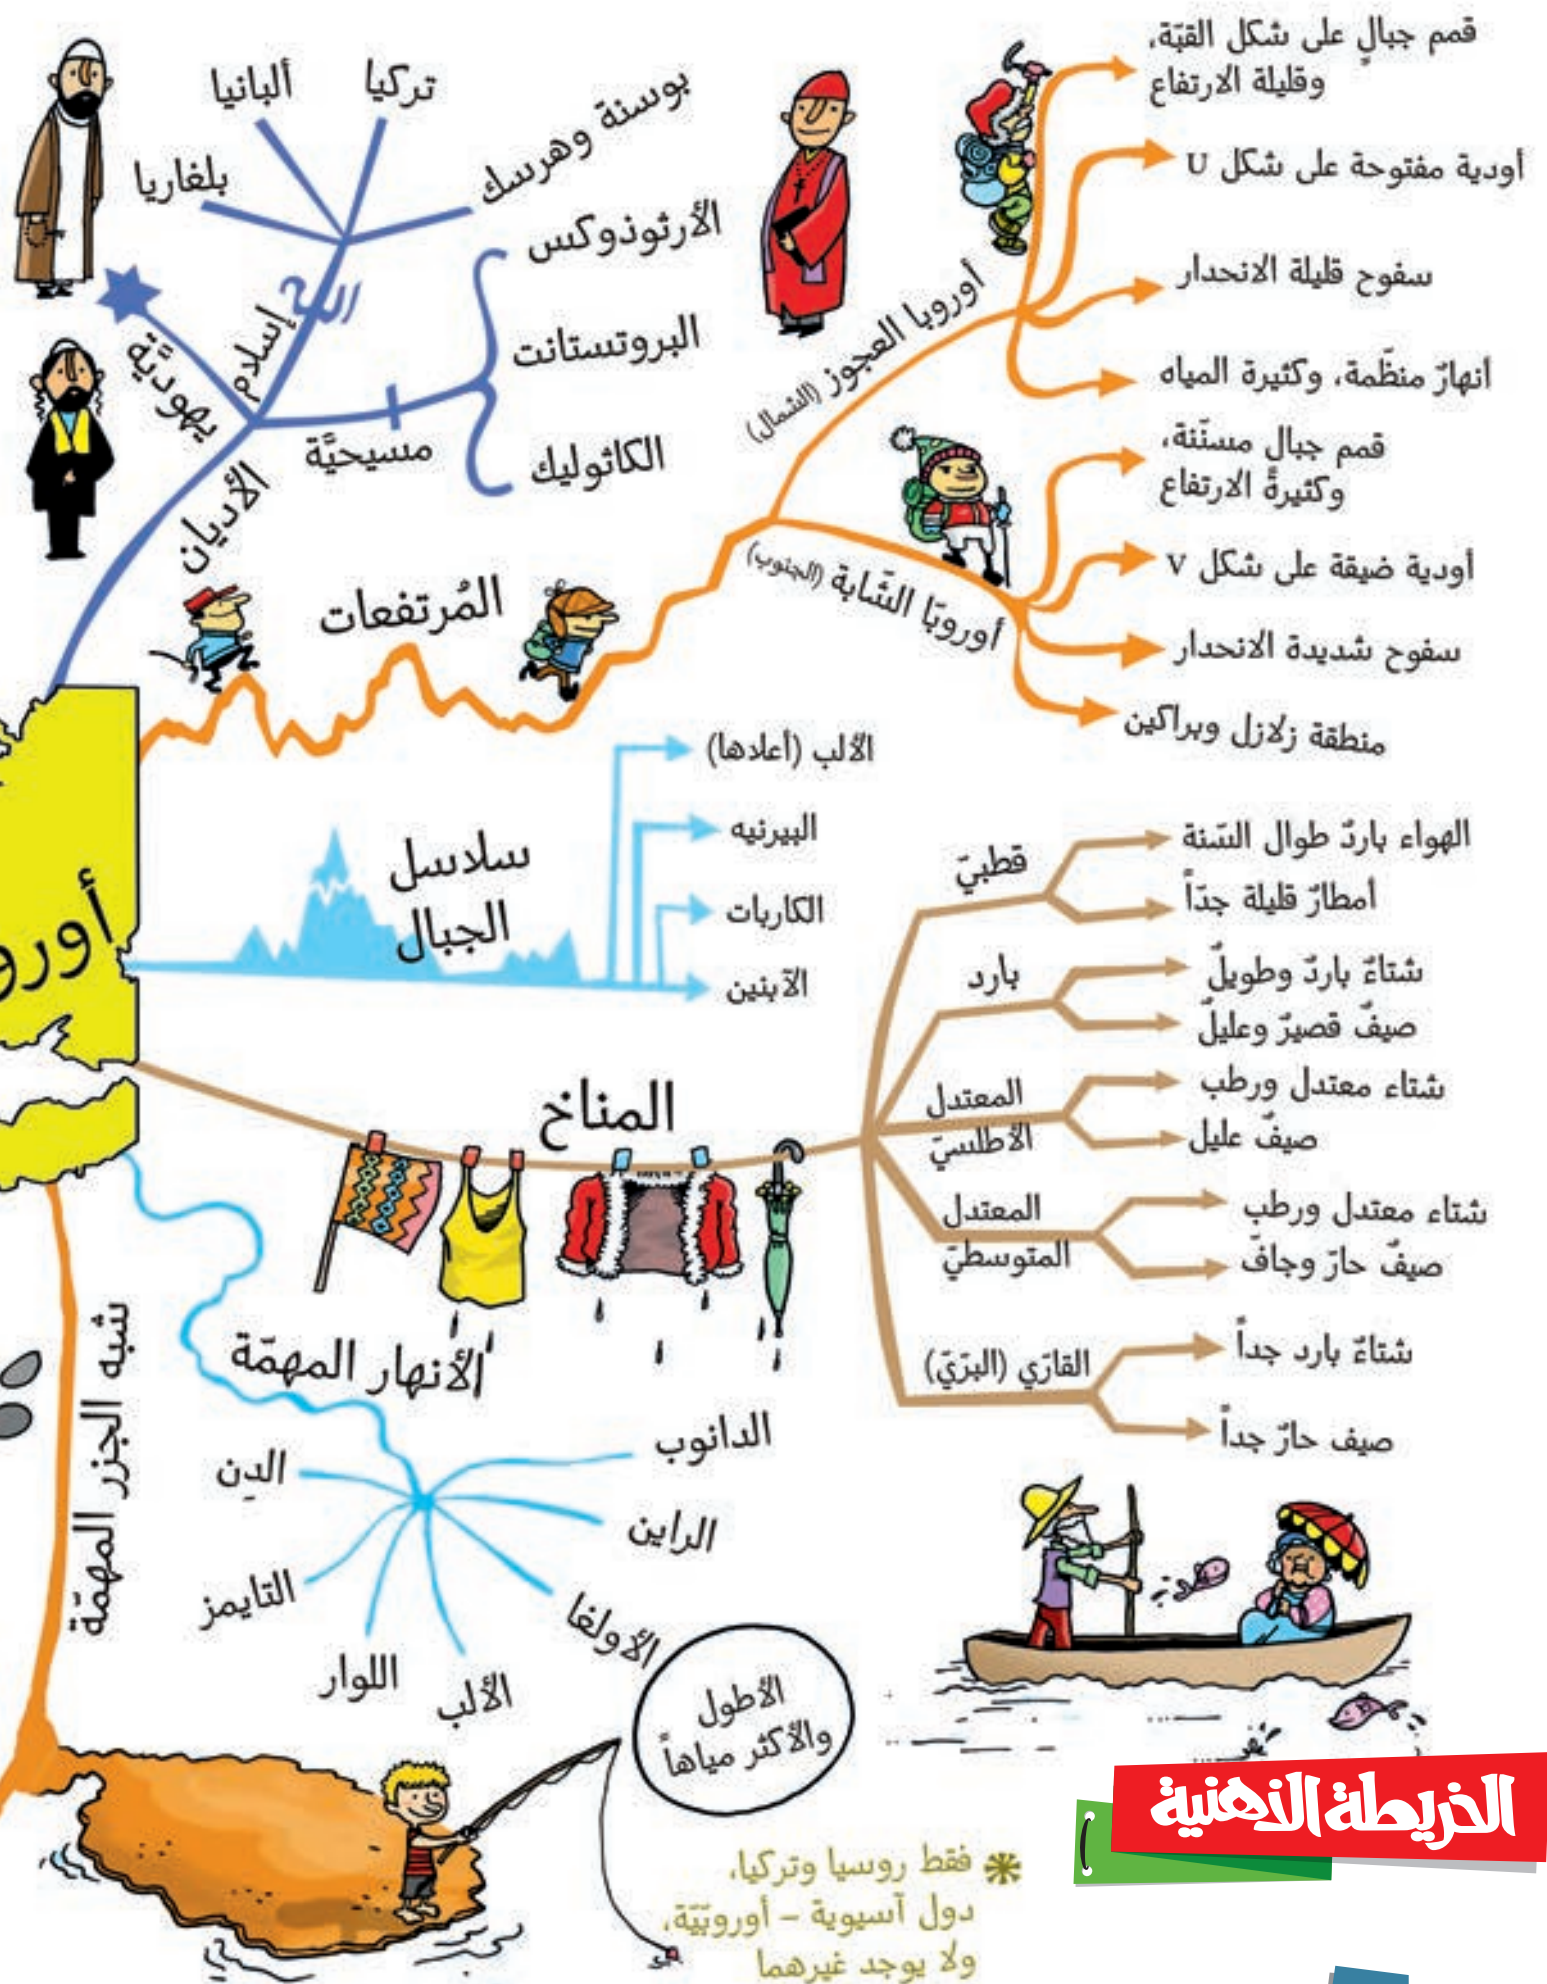 قمم جبالٍ على شكل القبّة،
وقليلة الارتفاع
أودية مفتوحة على شكل U
سفوح قليلة الانحدار
أنهارٌ منظّمة، وكثيرة المياه
أوروبا العجوز (الشمال)
قمم جبال مسنّنة،
وكثيرةً الارتفاع
أودية ضيقة على شكل V
سفوح شديدة الانحدار
منطقة زلازل وبراكين
أوروبّا الشّابة (الجنوب)
المُرتفعات
ألبانيا
تركيا
بوسنة وهرسك
بلغاريا
إسلام
يهوديَّة
الأرثوذوكس
البروتستانت
الكاثوليك
مسيحيَّة
الأديان
الألب (أعلاها)
البيرنيه
الكاربات
الآبنين
سلاسل
الجبال
أورو
قطبيّ
الهواء باردٌ طوال السّنة
أمطارٌ قليلة جدّاً
بارد
شتاءٌ باردٌ وطويلٌ
صيفٌ قصيرٌ وعليلٌ
المعتدل
الأطلسيّ
شتاء معتدل ورطب
صيفٌ عليل
المعتدل
المتوسطيّ
شتاء معتدل ورطب
صيفٌ حارّ وجافّ
القارّي (البرّيّ)
شتاءٌ بارد جداً
صيف حارٌ جداً
المناخ
الأنهار المهمّة
الدانوب
الراين
الأولغا
الألب
اللوار
التايمز
الدِن
الأطول
والأكثر مياهاً
شبه الجزر المهمّة
فقط روسيا وتركيا،
دول آسيوية – أوروبّيّة،
ولا يوجد غيرهما
الخريطة الذهنية